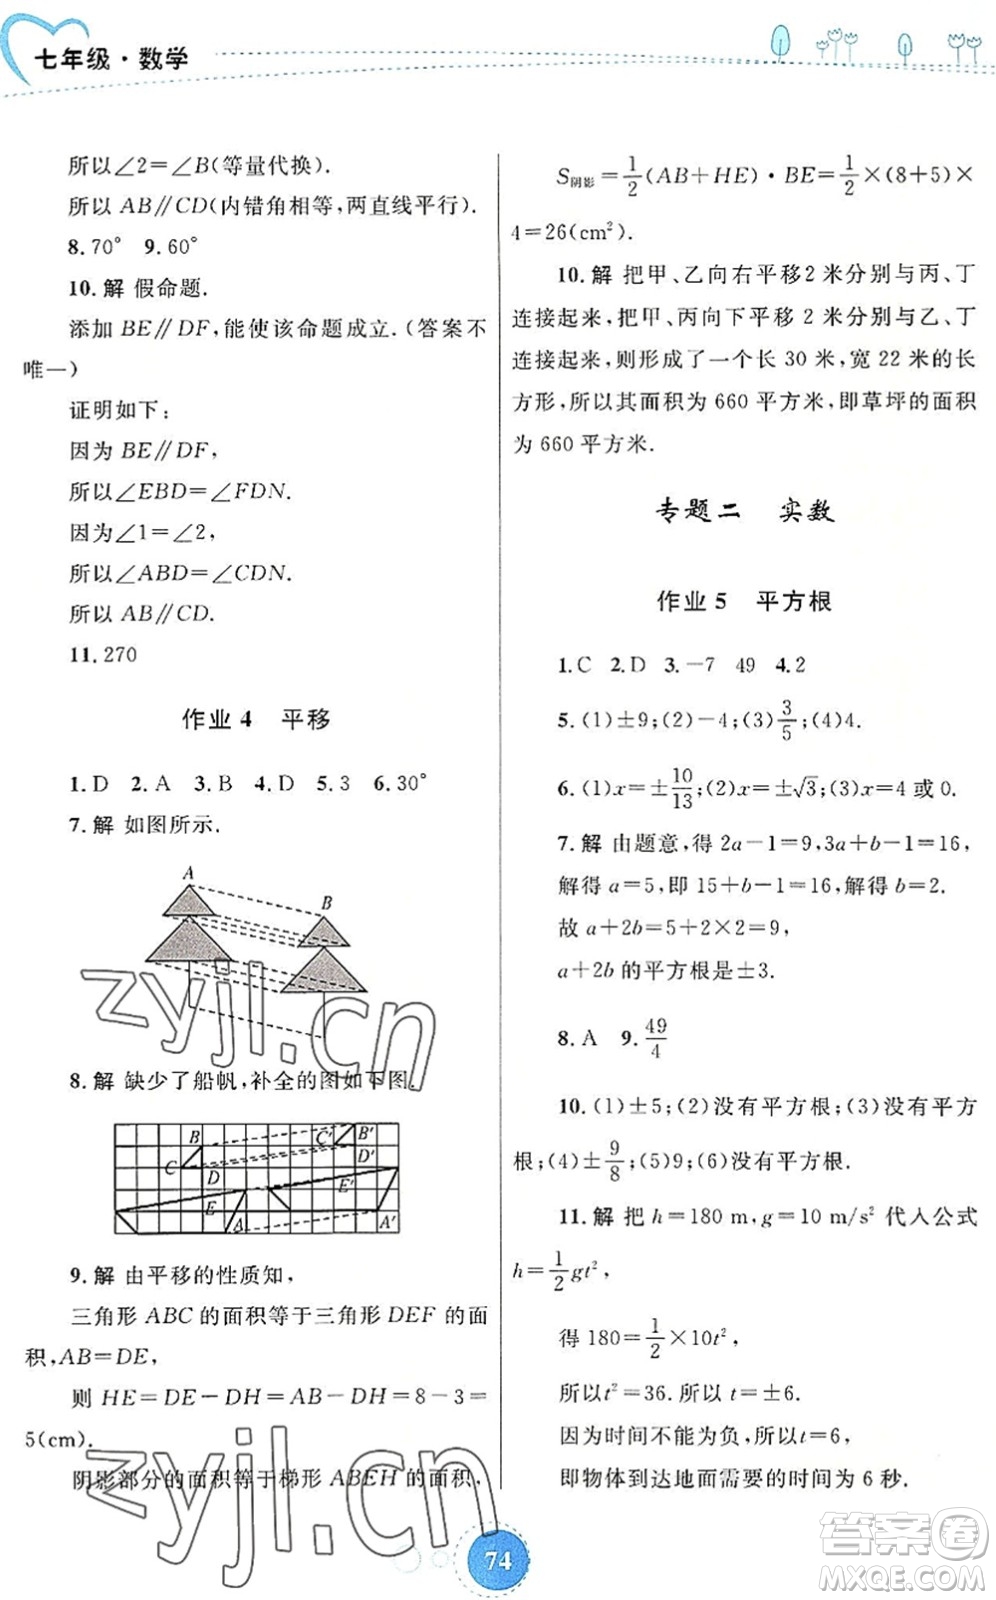 七年级·数学
所以∠2=∠B(等量代换).
所以 AB∥CD(内错角相等,两直线平行).
8.70° 9.60°
10.解 假命题.
添加 BE∥DF,能使该命题成立.(答案不
唯一)
证明如下:
因为 BE∥DF,
所以∠EBD=∠FDN.
因为∠1=∠2,
所以∠ABD=∠CDN.
所以 AB∥CD.
11.270
作业 4 平移
1.D 2.A 3.B 4.D 5.3 6.30°
7.解 如图所示.
A
B
8.解 缺少了船帆,补全的图如下图.
B C' B'
C D D'
E E'
A A'
9.解 由平移的性质知,
三角形 ABC 的面积等于三角形 DEF 的面
积,AB=DE,
则 HE=DE-DH=AB-DH=8-3=
5(cm).
阴影部分的面积等于梯形 ABEH 的面积,
S阴影=1/2(AB+HE)·BE=1/2×(8+5)×
4=26(cm²).
10.解 把甲、乙向右平移 2 米分别与丙、丁
连接起来,把甲、丙向下平移 2 米分别与乙、丁
连接起来,则形成了一个长 30 米,宽 22 米的长
方形,所以其面积为 660 平方米,即草坪的面积
为 660 平方米.
专题二 实数
作业 5 平方根
1.C 2.D 3.-7 49 4.2
5.(1)±9;(2)-4;(3)3/5;(4)4.
6.(1)x=±10/13;(2)x=±√3;(3)x=4 或 0.
7.解 由题意,得 2a-1=9,3a+b-1=16,
解得 a=5,即 15+b-1=16,解得 b=2.
故 a+2b=5+2×2=9,
a+2b 的平方根是±3.
8.A 9.49/4
10.(1)±5;(2)没有平方根;(3)没有平方
根;(4)±9/8;(5)9;(6)没有平方根.
11.解 把 h=180 m,g=10 m/s² 代入公式
h=1/2gt²,
得 180=1/2×10t²,
所以t²=36.所以 t=±6.
因为时间不能为负,所以t=6,
即物体到达地面需要的时间为 6 秒.
74
zyjl.cn
zyjl.cn
答案圈
MXQE.COM